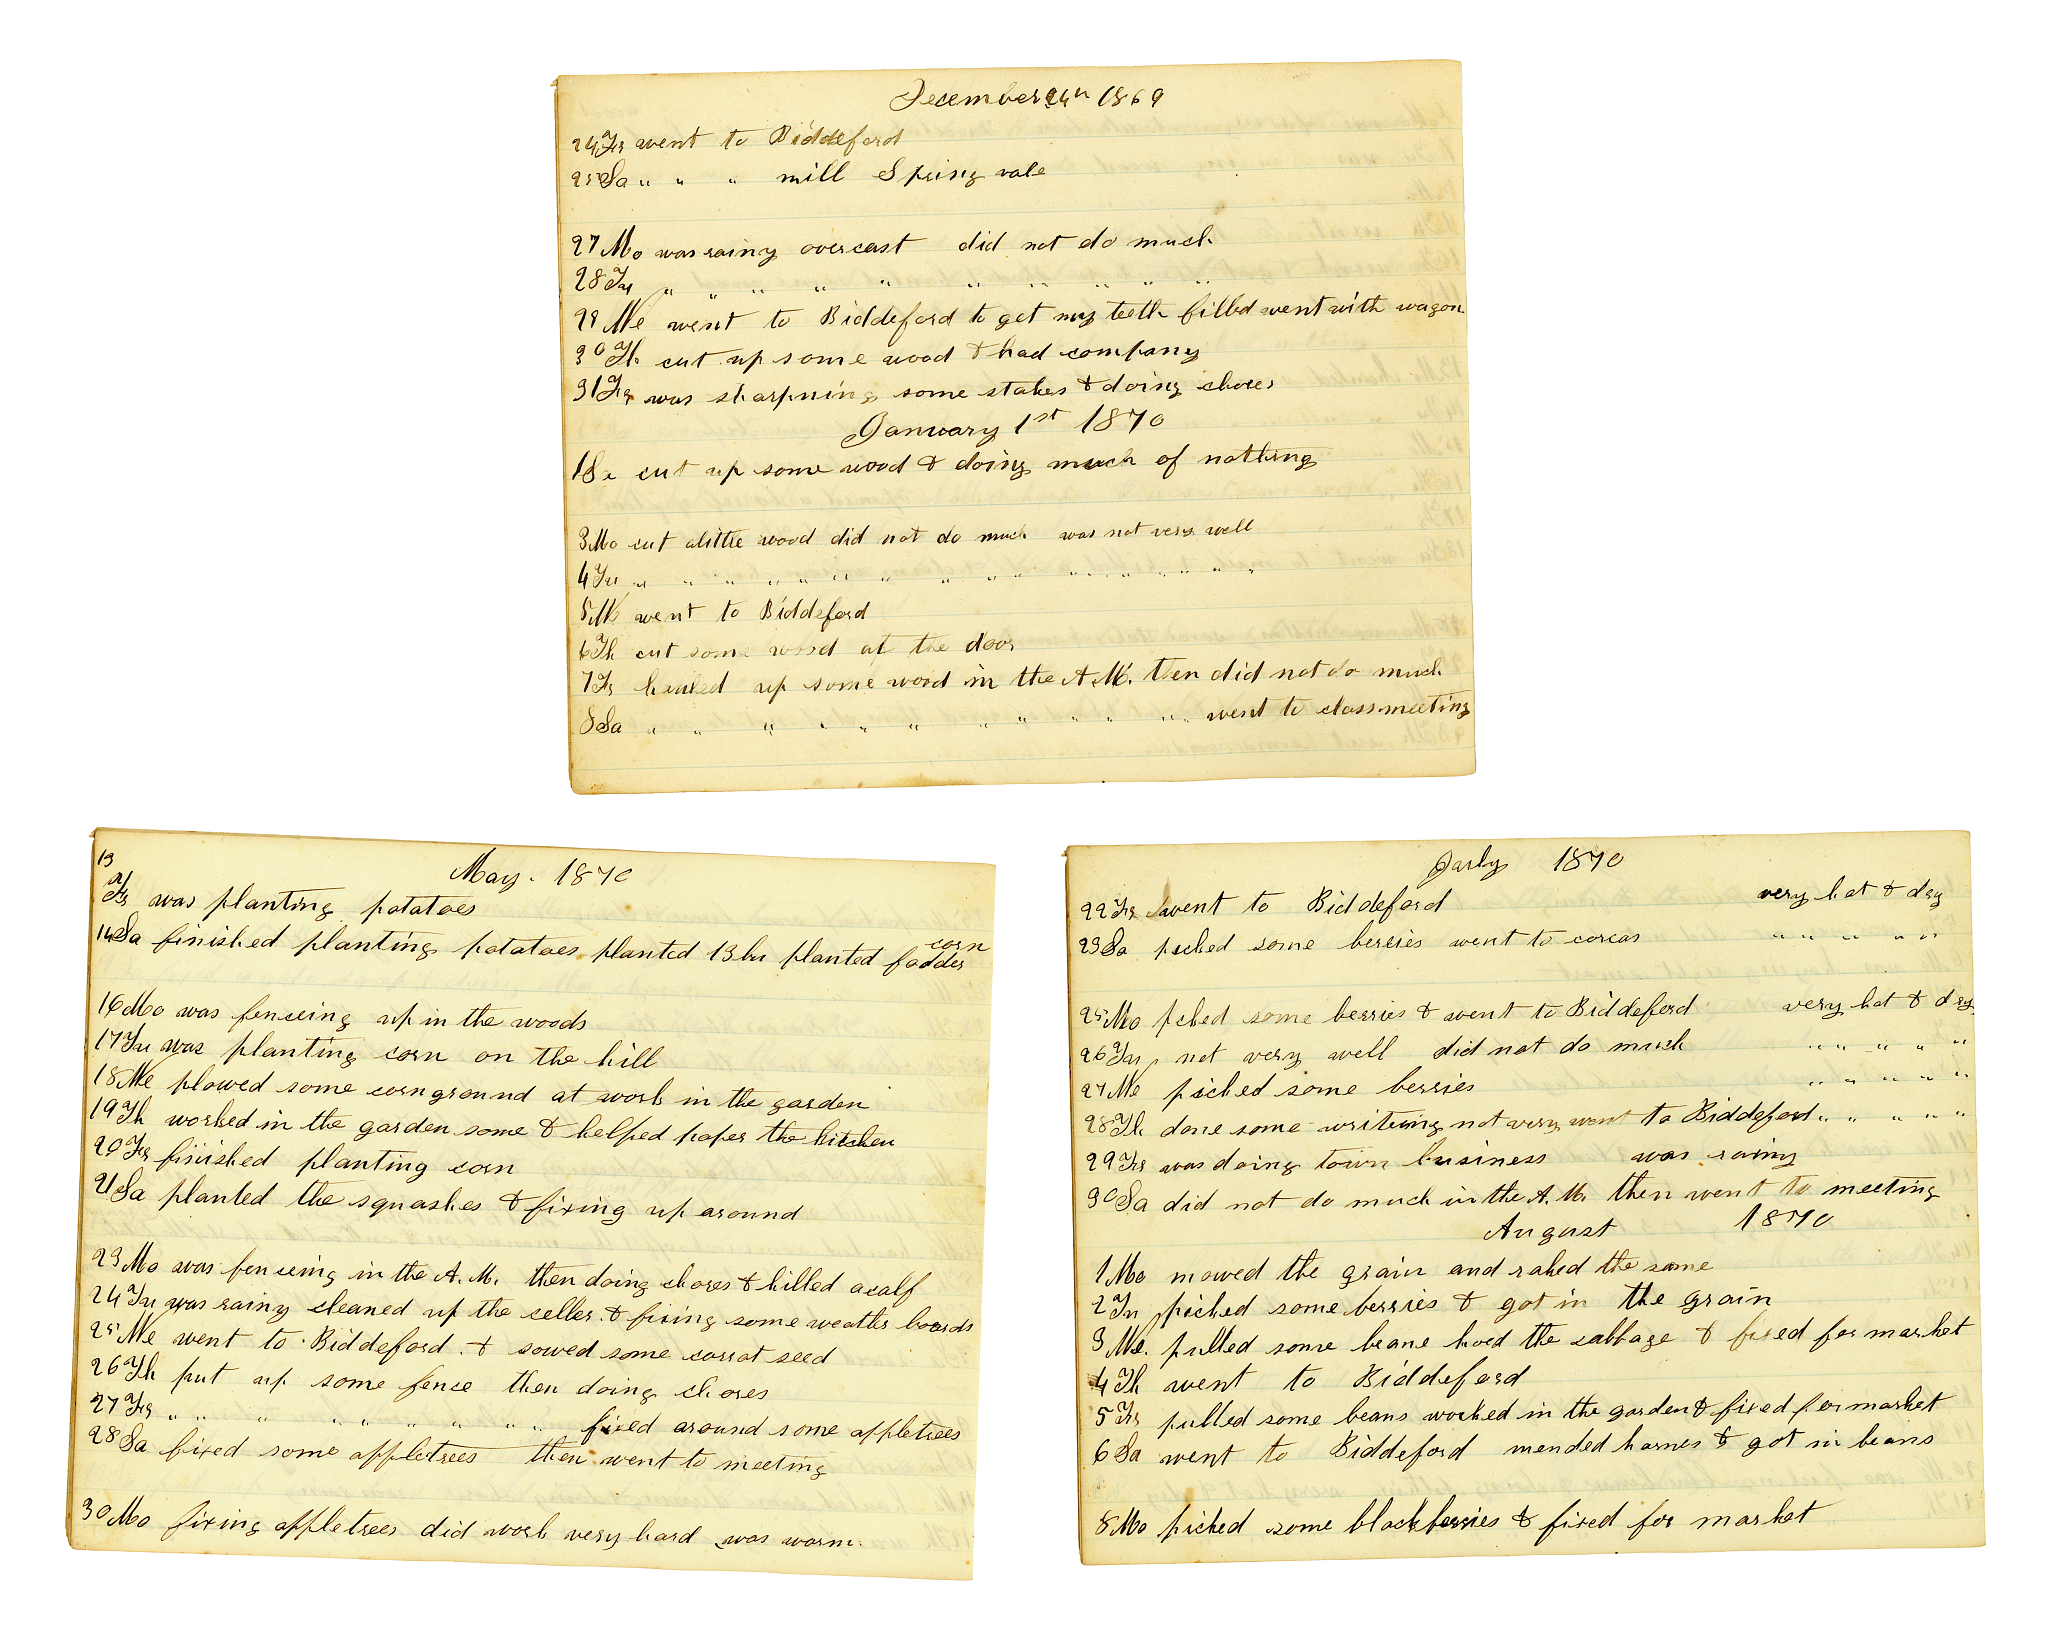 December 24th 1869
24 Fr went to Biddeford
25 Sa " " " mill Spring vale
27 Mo was rainy overcast did not do much
28 Tu " " " " " " " " " "
29 We went to Biddeford to get my teeth filled went with wagon
30 Th cut up some wood & had company
31 Fr was sharpning some stakes & doing chores
January 1st 1870
1 Sa cut up some wood & doing much of nothing
3 Mo cut alittle wood did not do much was not very well
4 Tu " " " " " " " " " " " " " " " "
5 We went to Biddeford
6 Th cut some wood at the door
7 Fr hauled up some wood in the A.M. then did not do much
8 Sa " " " " " " " " " " " " went to classmeeting
13 May. 1870
Fr was planting potatoes
14 Sa finished planting potatoes planted 13 bu planted fodder corn
16 Mo was fenceing up in the woods
17 Tu was planting corn on the hill
18 We plowed some cornground at work in the garden
19 Th worked in the garden some & helped paper the kitchen
20 Fr finished planting corn
21 Sa planted the squashes & fixing up around
23 Mo was fenceing in the A.M. then doing chores & killed acalf
24 Tu was rainy cleaned up the celler & fixing some weather boards
25 We went to Biddeford. & sowed some carrot seed
26 Th put up some fence then doing chores
27 Fr " " " " " " " " " fixed around some appletrees
28 Sa fixed some appletrees then went to meeting
30 Mo fixing appletrees did work very hard was warm.
July 1870
22 Fr went to Biddeford very hot & dry
23 Sa picked some berries went to " " " " "
25 Mo pcked some berries & went to Biddeford very hot & dry
26 Tu not very well did not do much " " " " "
27 We picked some berries " " " " "
28 Th done some writeing not very went to Biddeford " " " " "
29 Fr was doing town business was rainy
30 Sa did not do much in the A.M. then went to meeting
August 1870
1 Mo mowed the grain and raked the same
2 Tu picked some berries & got in the grain
3 We. pulled some beane hoed the cabbage & fixed for market
4 Th went to Biddeford
5 Fr pulled some beans worked in the garden & fixed for market
6 Sa went to Biddeford mended harnes & got in beans
8 Mo picked some blackberries & fixed for market